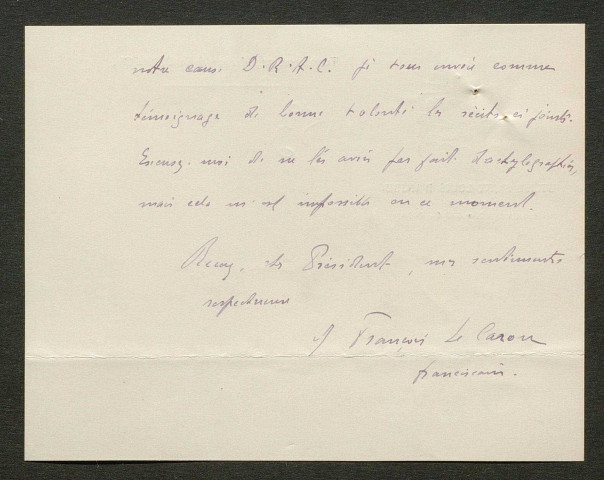 notre cause D.R.A.C. je vous envoie comme
témoignage de bonne volonté les récits ci joints.
Excusez-moi de ne les avoir pas fait dactylographier,
mais cela m'est impossible en ce moment.
Recevez, Président, mes sentiments
respectueux
François Le Caron
franciscain.